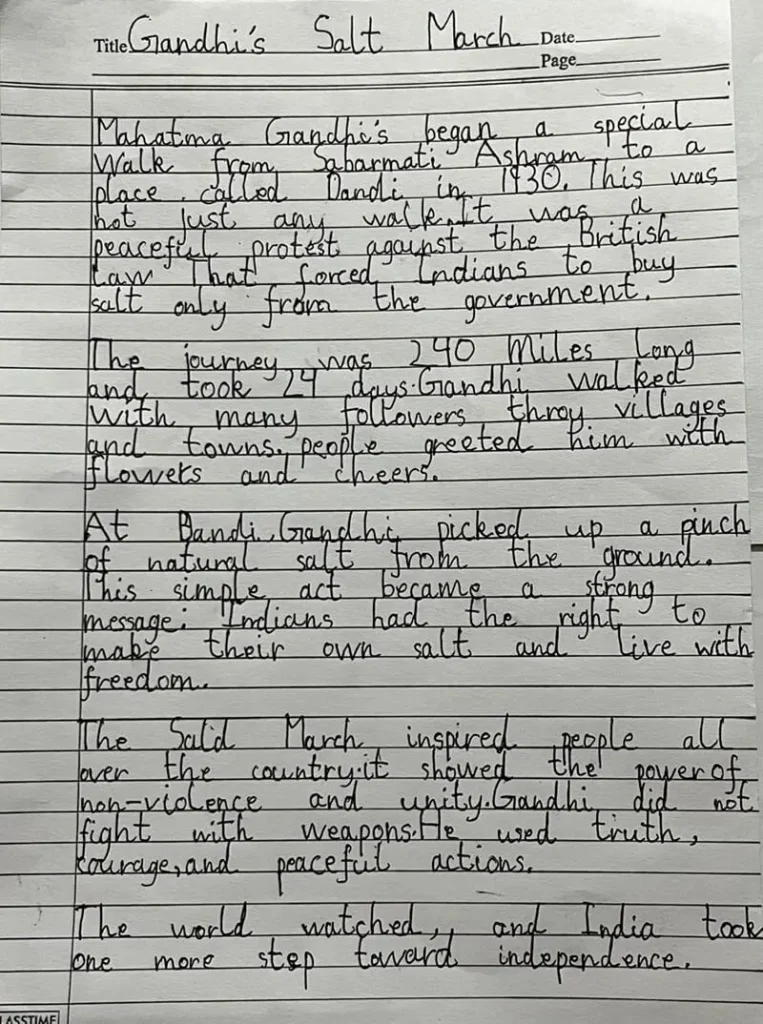 Title Gandhi's Salt March Date
Page
Mahatma Gandhi's began a special
Walk from Sabarmati Ashram to a
place called Dandi in 1930. This was
not just any walk.It was a
peaceful protest against the British
Law That forced Indians to buy
salt only from the government.
The journey was 240 Miles Long
and took 24 days.Gandhi walked
With many followers throy villages
and towns.people greeted him with
flowers and cheers.
At Dandi,Gandhi picked up a pinch
of natural salt from the ground.
This simple act became a strong
message: Indians had the right to
make their own salt and live with
freedom.
The Sald March inspired people all
over the country.it showed the power of
non-violence and unity.Gandhi did not
fight with weapons.He used truth,
courage,and peaceful actions.
The world watched, and India took
one more step toward independence.
LASSTIME